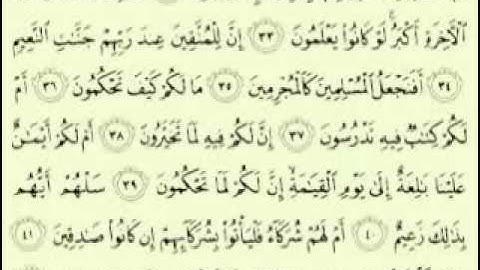 ٱلْأَخِرَةِ أَكْبَرُ لَوْ كَانُوا۟ يَعْلَمُونَ ٣٣ إِنَّ لِلْمُتَّقِينَ عِندَ رَبِّهِمْ جَنَّٰتِ ٱلنَّعِيمِ
٣٤ أَفَنَجْعَلُ ٱلْمُسْلِمِينَ كَٱلْمُجْرِمِينَ ٣٥ مَا لَكُمْ كَيْفَ تَحْكُمُونَ ٣٦ أَمْ
لَكُمْ كِتَٰبٌ فِيهِ تَدْرُسُونَ ٣٧ إِنَّ لَكُمْ فِيهِ لَمَا تَخَيَّرُونَ ٣٨ أَمْ لَكُمْ أَيْمَٰنٌ
عَلَيْنَا بَٰلِغَةٌ إِلَىٰ يَوْمِ ٱلْقِيَٰمَةِ إِنَّ لَكُمْ لَمَا تَحْكُمُونَ ٣٩ سَلْهُمْ أَيُّهُم
بِذَٰلِكَ زَعِيمٌ ٤٠ أَمْ لَهُمْ شُرَكَآءُ فَلْيَأْتُوا۟ بِشُرَكَآئِهِمْ إِن كَانُوا۟ صَٰدِقِينَ ٤١